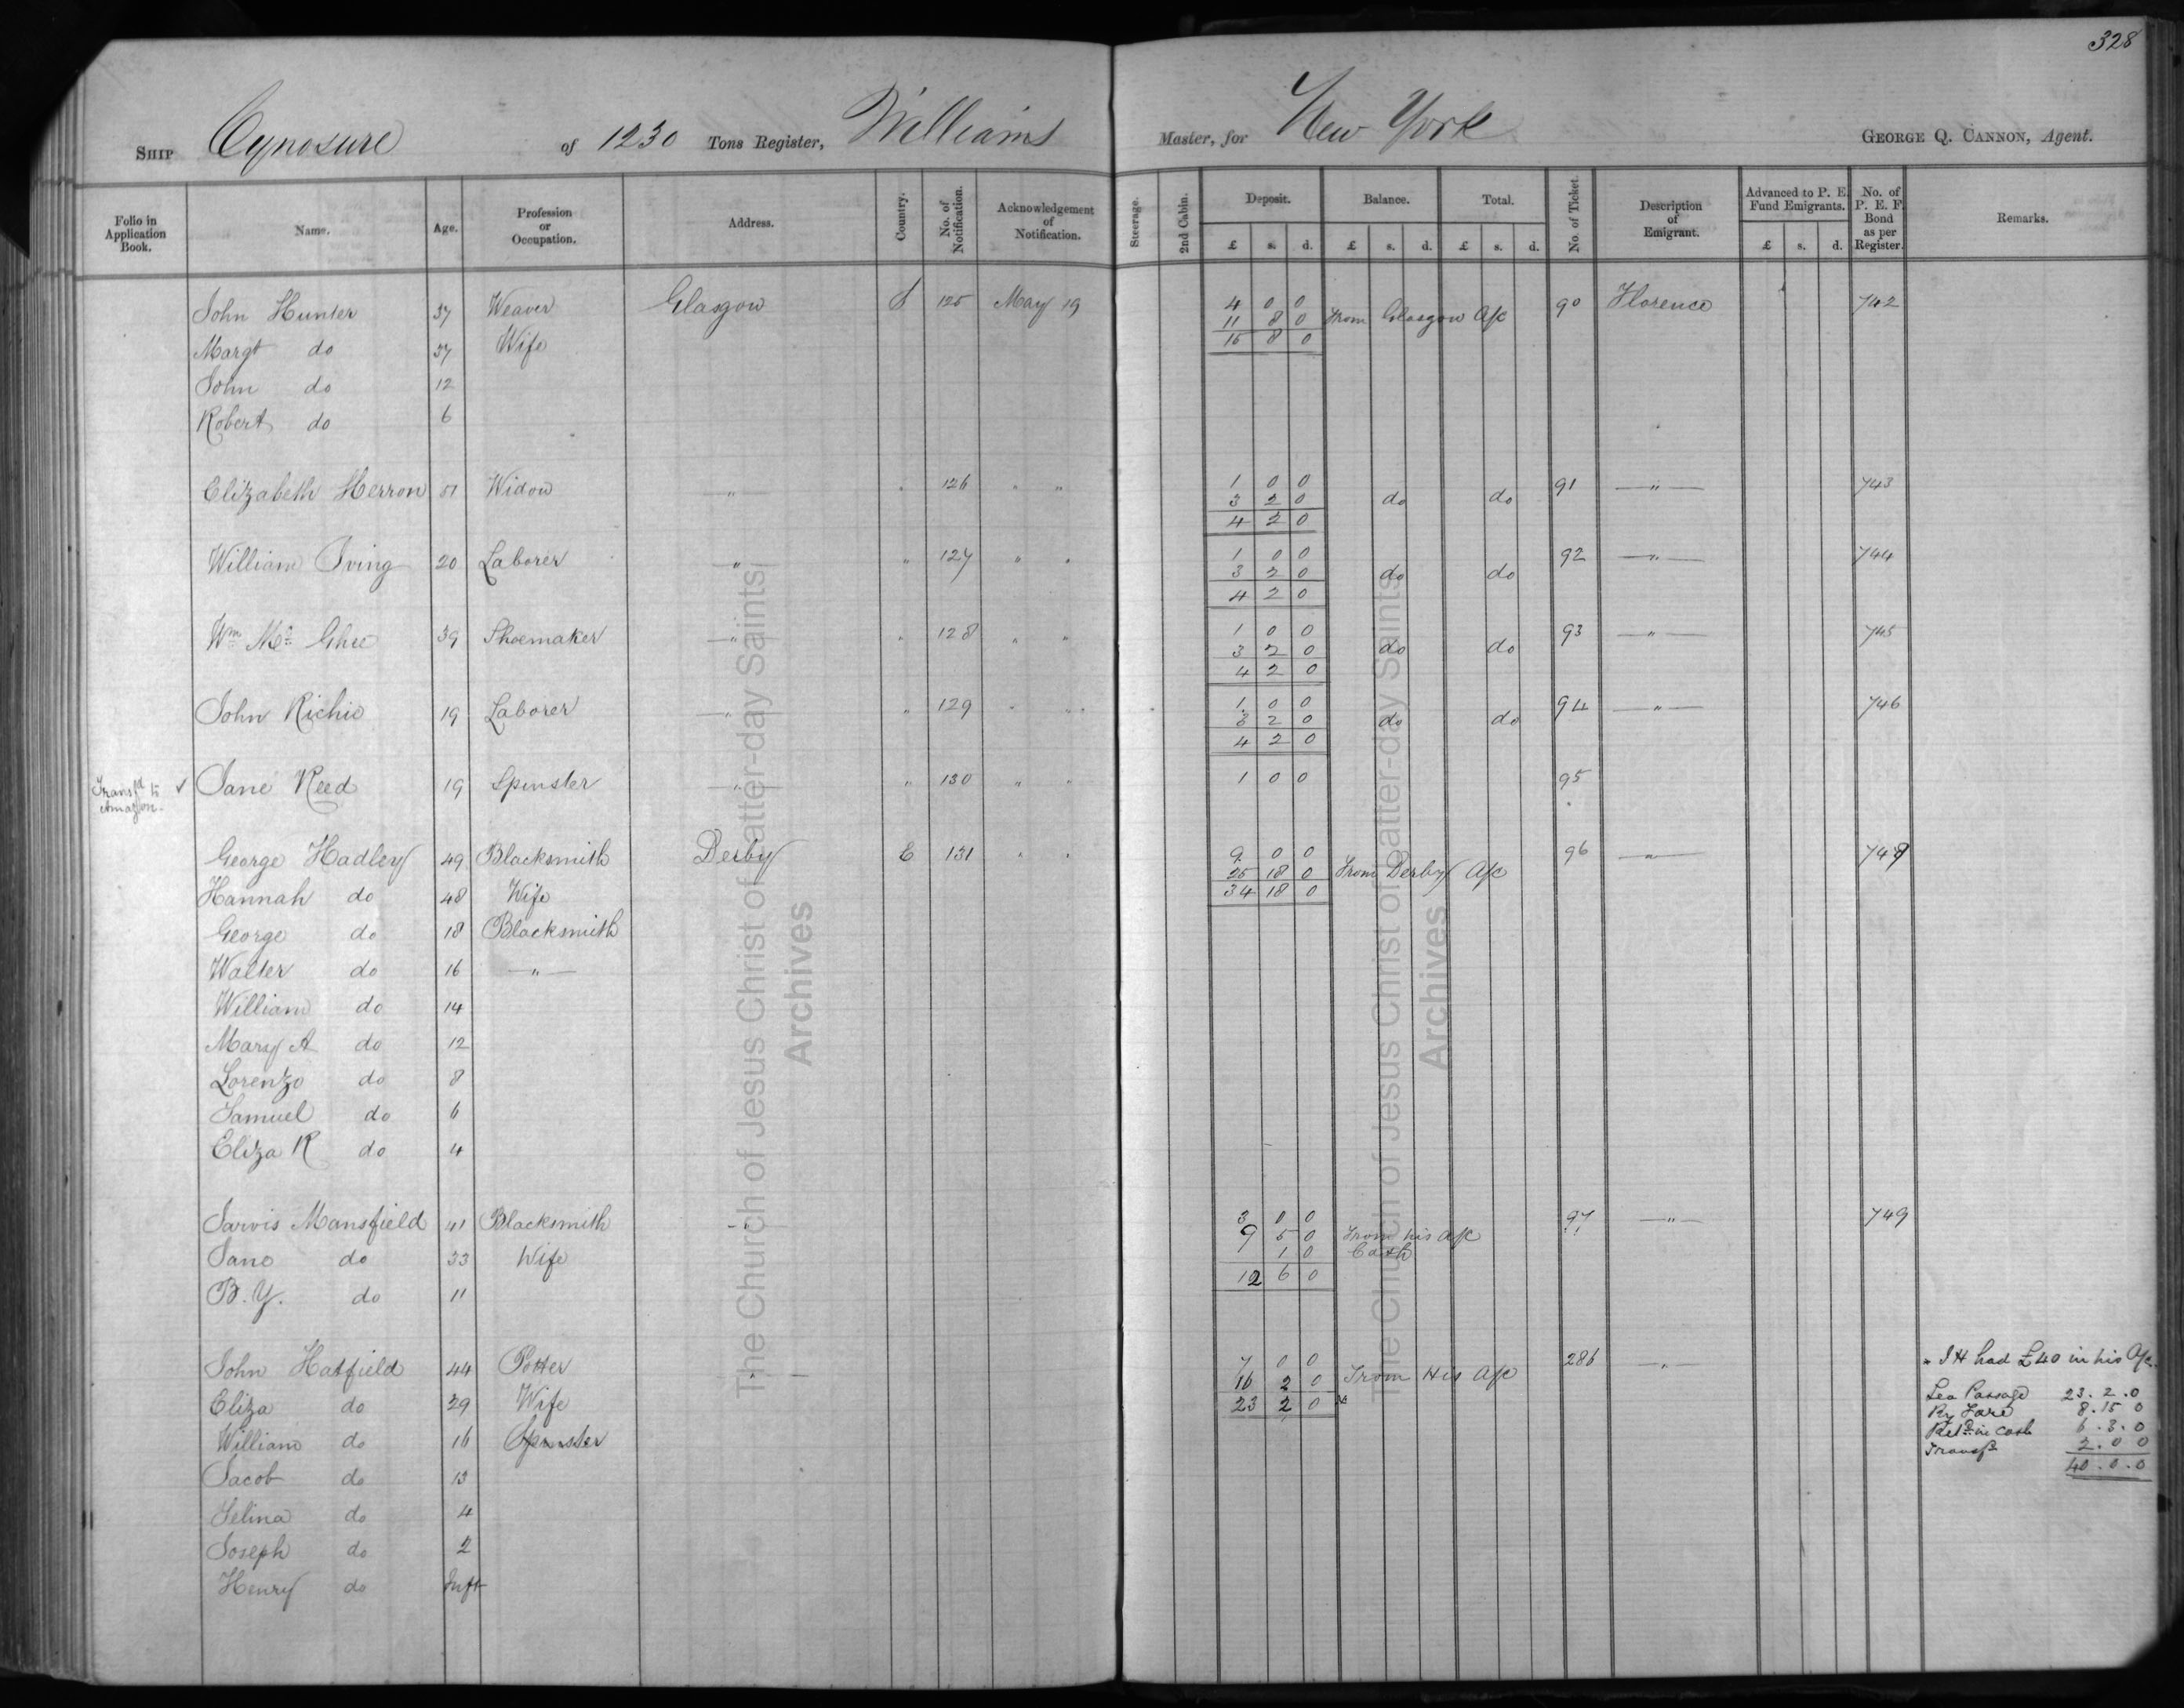 328
SHIP Cynosure of 1230 Tons Register, Williams Master, for New York GEORGE Q. CANNON, Agent.
Folio in Application Book. Name. Age. Profession or Occupation. Address. Country. No. of Notification. Acknowledgement of Notification. Steerage. 2nd Cabin. Deposit. Balance. Total. No. of Ticket. Description of Emigrant. Advanced to P. E. Fund Emigrants. No. of P. E. F. Bond as per Register. Remarks.
£ s. d. £ s. d. £ s. d. £ s. d.
John Hunter 37 Weaver Glasgow S 125 May 19 4 0 0 90 Florence 742
11 8 0 From Glasgow A/c
Margt do 37 Wife 15 8 0
John do 12
Robert do 6
Elizabeth Herron 51 Widow " " 126 " " 1 0 0 91 " 743
3 2 0 do do
4 2 0
William Iving 20 Laborer " " 127 " " 1 0 0 92 " 744
3 2 0 do do
4 2 0
Wm Mc Ghee 39 Shoemaker " " 128 " " 1 0 0 93 " 745
3 2 0 do do
4 2 0
John Richie 19 Laborer " " 129 " " 1 0 0 94 " 746
3 2 0 do do
4 2 0
Transfd to Amazon. ✓ Jane Reed 19 Spinster " " 130 " " 1 0 0 95
George Hadley 49 Blacksmith Derby E 131 " " 9 0 0 96 " 748
25 18 0 From Derby A/c
Hannah do 48 Wife 34 18 0
George do 18 Blacksmith
Walter do 16 "
William do 14
Mary A do 12
Lorenzo do 8
Samuel do 6
Eliza R do 4
Jarvis Mansfield 41 Blacksmith " 3 0 0 97 " 749
9 5 0 From his A/c
Jane do 33 Wife 1 0 Cash
12 6 0
B. Y. do 11
John Hatfield 44 Potter " 7 0 0 286 " * J H had £40 in his A/c.
16 2 0 From His A/c
Eliza do 29 Wife 23 2 0 * Sea Passage 23. 2. 0
Ry Fare 8. 15 0
William do 16 Spinster Retd in cash 6. 3. 0
Transf 2. 0 0
Jacob do 13 40. 0. 0
Selina do 4
Joseph do 2
Henry do Inft
The Church of Jesus Christ of Latter-day Saints
Archives
The Church of Jesus Christ of Latter-day Saints
Archives